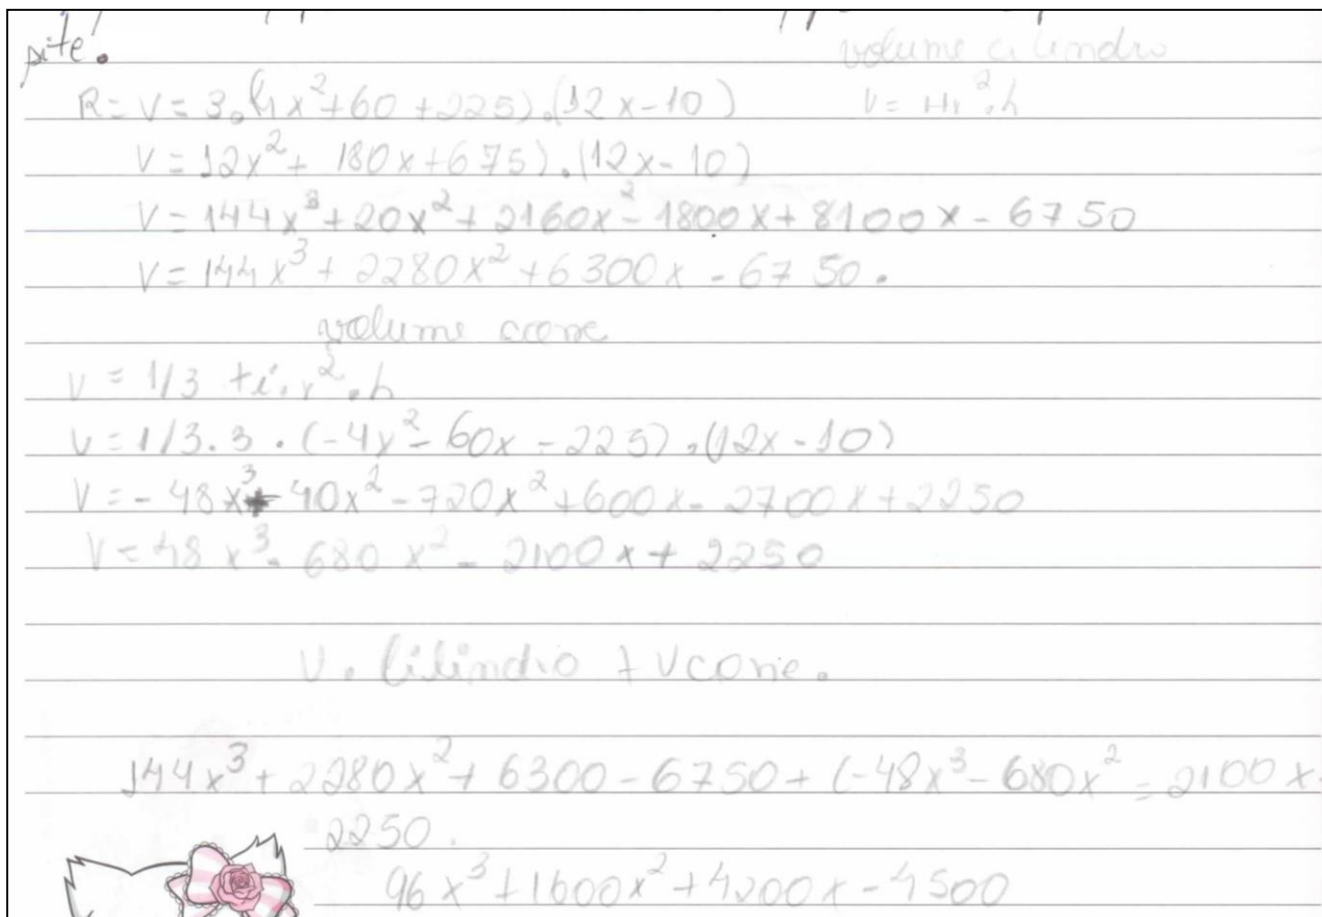 pite!.
volume cilindro
R = V = 3.(4x²+60+225).(12x-10) V = πr².h
V = 12x² + 180x+675).(12x-10)
V = 144x³+20x²+2160x²-1800x+8100x-6750
V = 144x³ + 2280x²+6300x-6750.
volume cone
V = 1/3 ti.r².h
V = 1/3.3.(-4x²-60x-225).(12x-10)
V = -48x³+40x²-720x²+600x-2700x+2250
V = 48x³-680x²-2100x+2250
V. Cilindro + V cone.
144x³+2280x²+6300-6750+(-48x³-680x²-2100x+
2250.
96x³+1600x²+4200x-4500